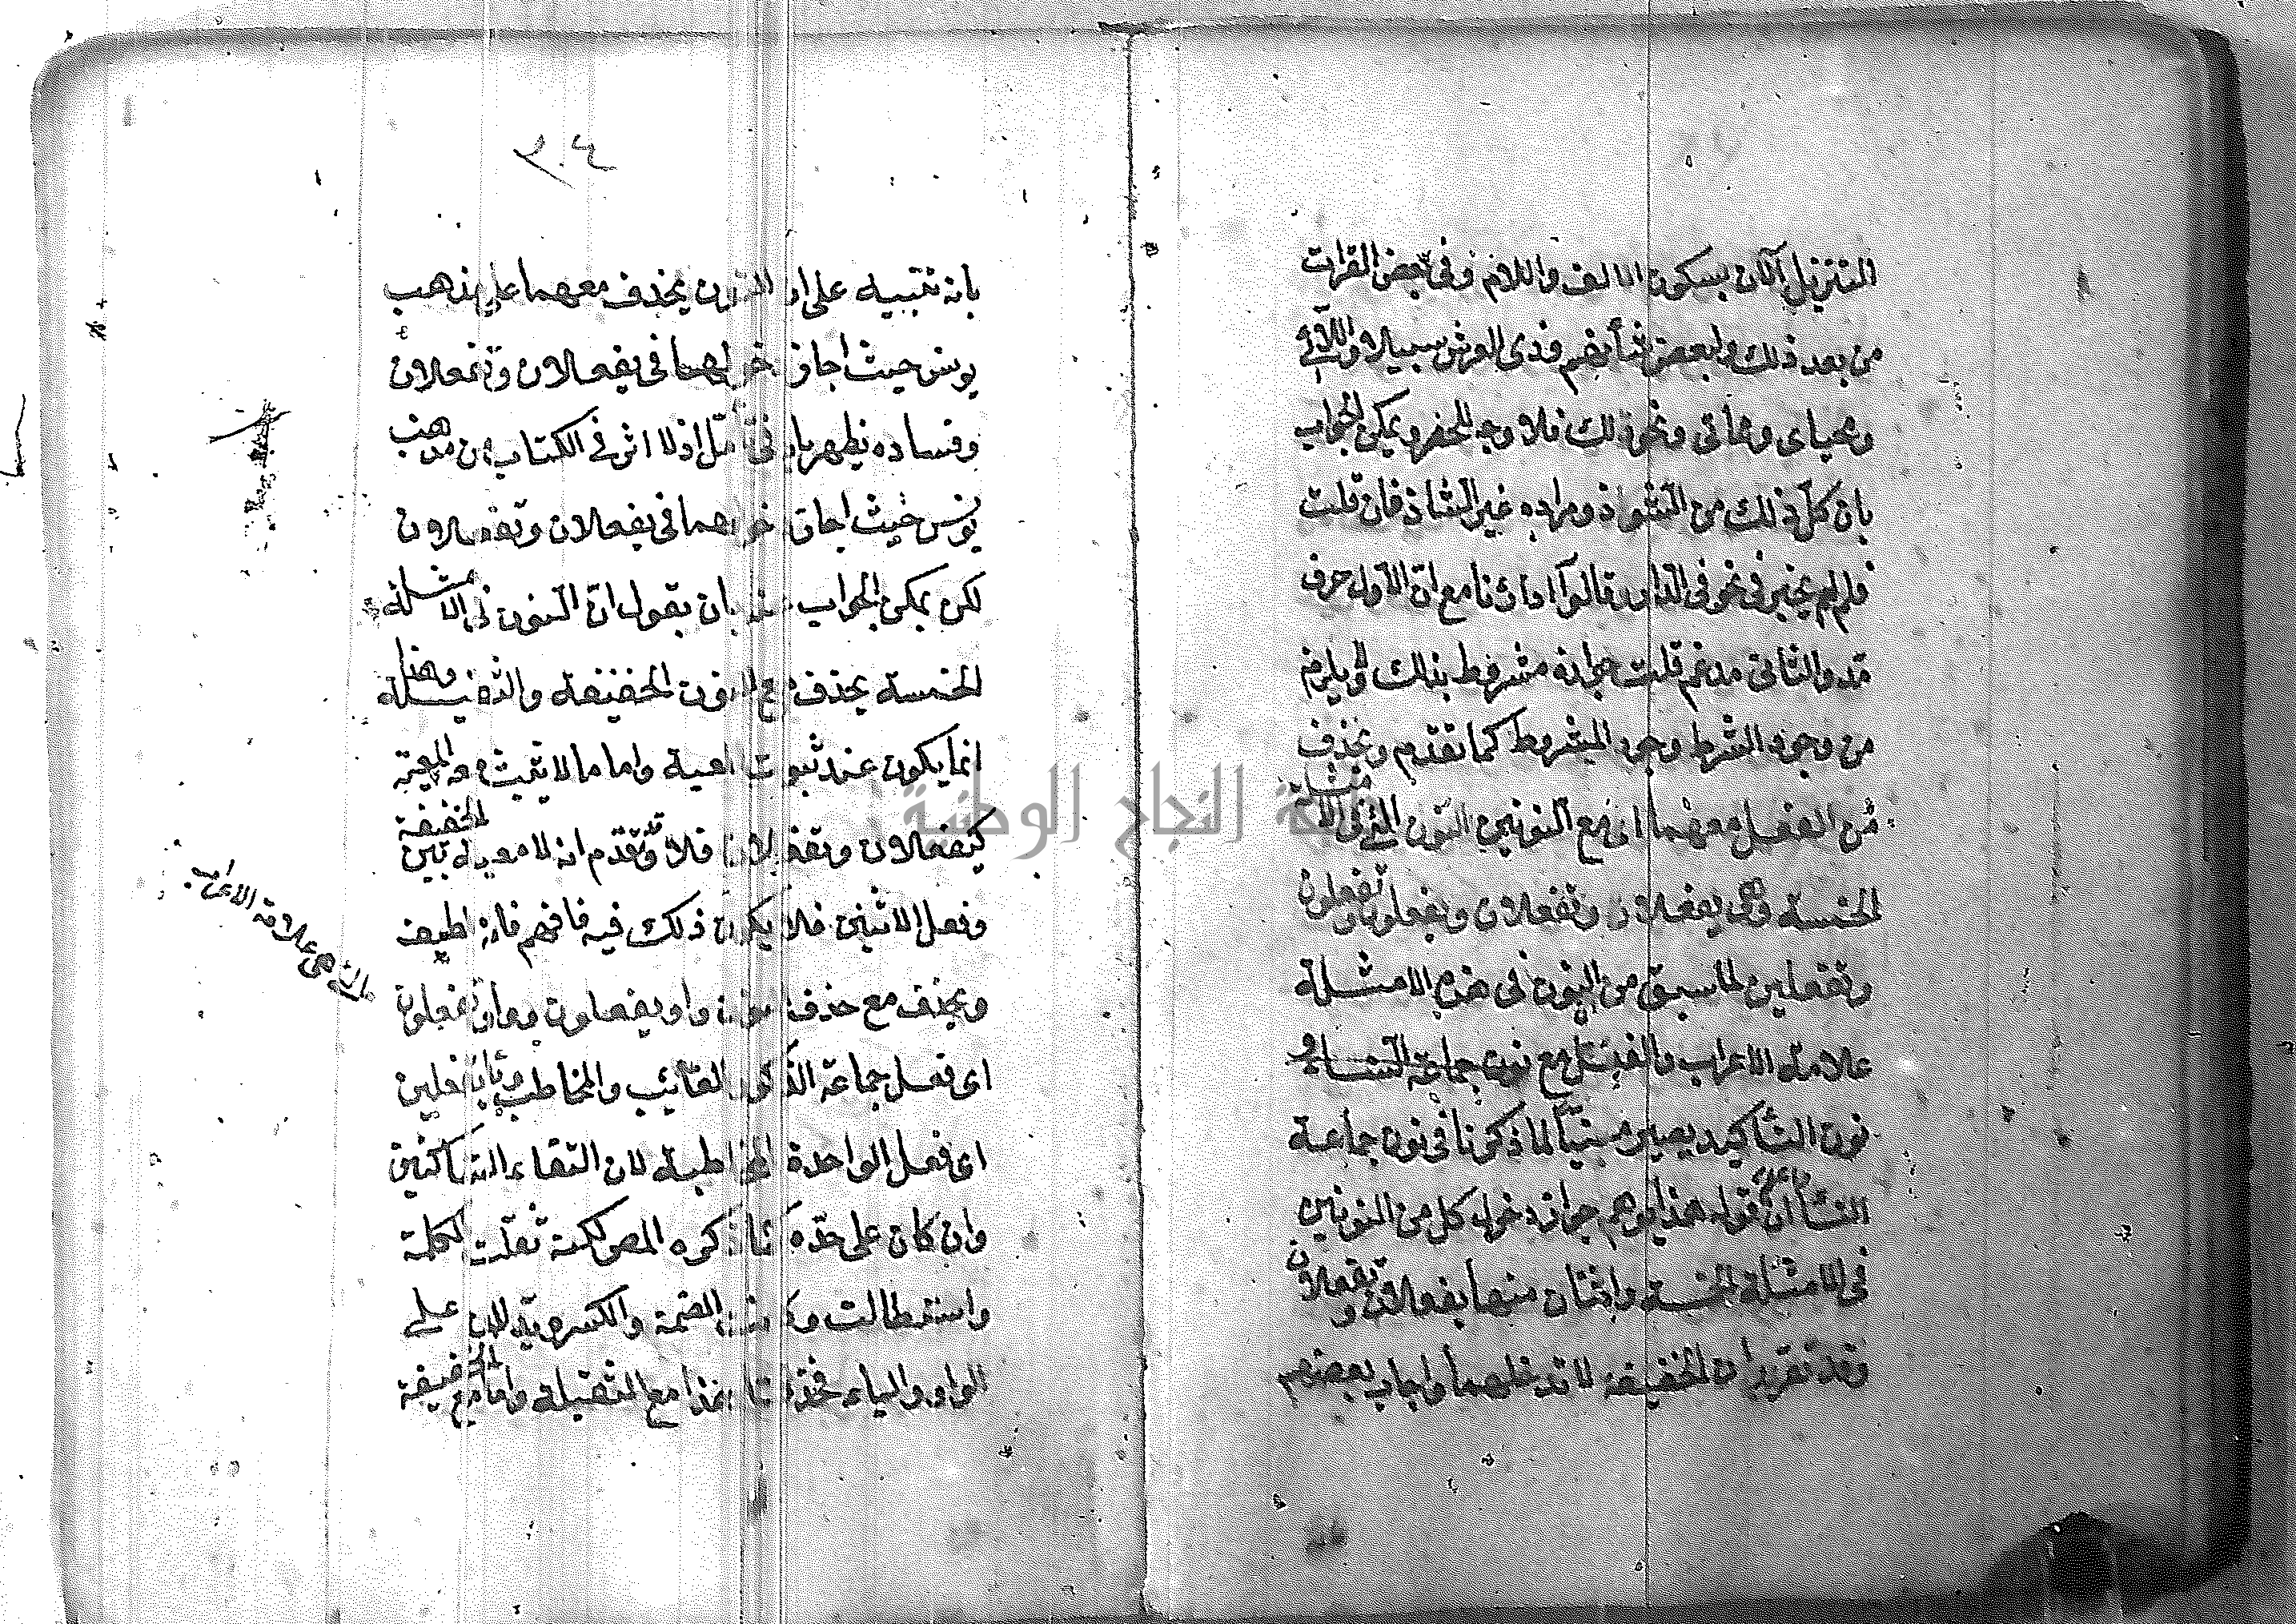 التنزيل آلآن بسكون الالف واللام وفى بعض القراءت
من بعد ذلك ولبعض شأنهم وذى العرش سبيلا واللآئى
ومحياى ومماتى ونحو ذلك فلا وجه للحصر ويمكن الجواب
بان كل ذلك من الشواذ ومراده غير الشاذ فان قلت
فلم لم يجز فى نحو فى الدار وقالوا ادارأنا مع ان الاول حرف
مد والثانى مدغم قلت جوازه مشروط بذلك ولا يلزم
من وجود الشرط وجود المشروط كما تقدم ويحذف
من الفعل معهما اى مع النونين النون التى فى الامثلة
الخمسة وهى يفعلان وتفعلان ويفعلون وتفعلون
وتفعلين لما سبق من النون فى هذه الامثلة
علامة الاعراب والفعل مع نون جماعة النساء و
نون التاكيد يصير مبنيا لما ذكرنا فى نون جماعة
النساء اعلم ان قوله هذا يوهم جواز دخول كل من النونين
فى الامثلة الخمسة واثنان منها يفعلان وتفعلان
وقد تقرر ان الخفيفة لا تدخلهما واجاب بعضهم
٢٠٤
بانه تنبيه على ان النون يحذف معهما على مذهب
يونس حيث اجاز دخولهما فى يفعلان وتفعلان
وفساده يظهر بادنى تأمل اذ لا اثر فى الكتاب من مذهب
يونس حيث اجاز دخولهما فى يفعلان وتفعلان
لكن يمكن الجواب عنه بان يقول ان النون فى الامثلة
الخمسة يحذف مع النون الخفيفة والثقيلة وهذا
انما يكون عند ثبوت المعية واما ما لا يثبت معه المعية
كيفعلان وتفعلان فلا وقد تقدم انه لا معية بين الخفيفة
وفعل الاثنين فلا يكون ذلك فيه فافهم فانه لطيف
ويحذف مع حذف النون واو يفعلون وواو تفعلون
التى هى علامة الاعراب
اى فعل جماعة الذكور الغائب والمخاطب وياء تفعلين
اى فعل الواحدة المخاطبة لان التقاء الساكنين
وان كان على حده كما ذكره المص لكنه ثقلت الكلمة
واستطالت وكانت الضمة والكسرة تدلان على
الواو والياء فحذفتا هذا مع الثقيلة واما مع الخفيفة
جامعة النجاح الوطنية